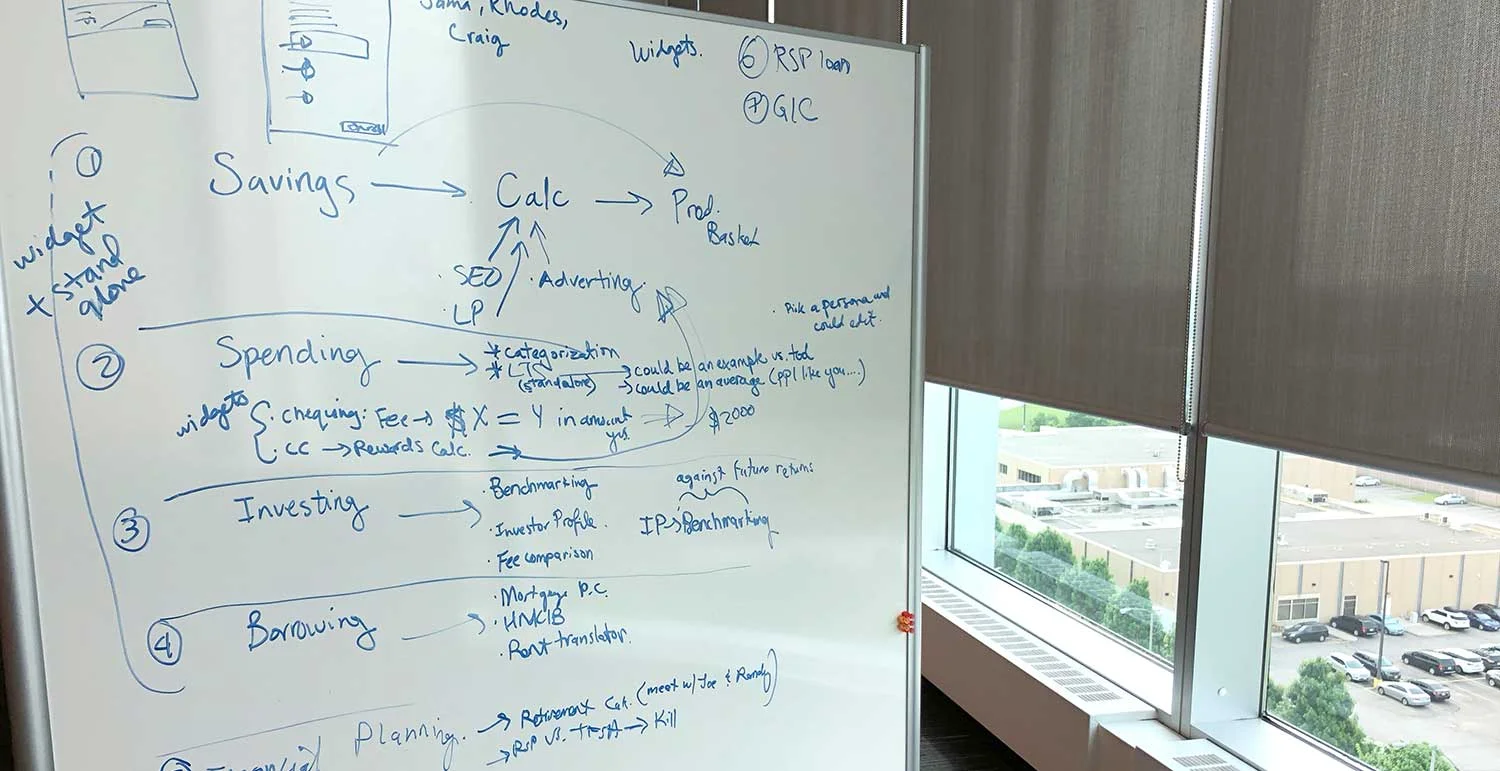 Jama, Rhodes,
Craig
Widgets.
⑥ RSP loan
⑦ GIC
①
Savings → Calc → Prod.
Basket
widget
x stand
alone
· SEO
· Adverting
· LP
· Pick a persona and
could edit.
②
Spending → * categorization
* LTS → could be an example vs. tool
(standalone) → could be an average (ppl like you....)
widgets
· Chequing: Fee → $ X = Y in amount → $2000
yrs.
· CC → Rewards Calc. →
③
Investing → · Benchmarking
· Investor Profile.
· Fee comparison
against future returns
IP → Benchmarking
④
Borrowing → · Mortgage P.C.
· HMCIB
· Rent translator.
Financial Planning. → Retirement Calc. (meet w/ Joe & Randy)
→ RSP vs. TFSA → Kill